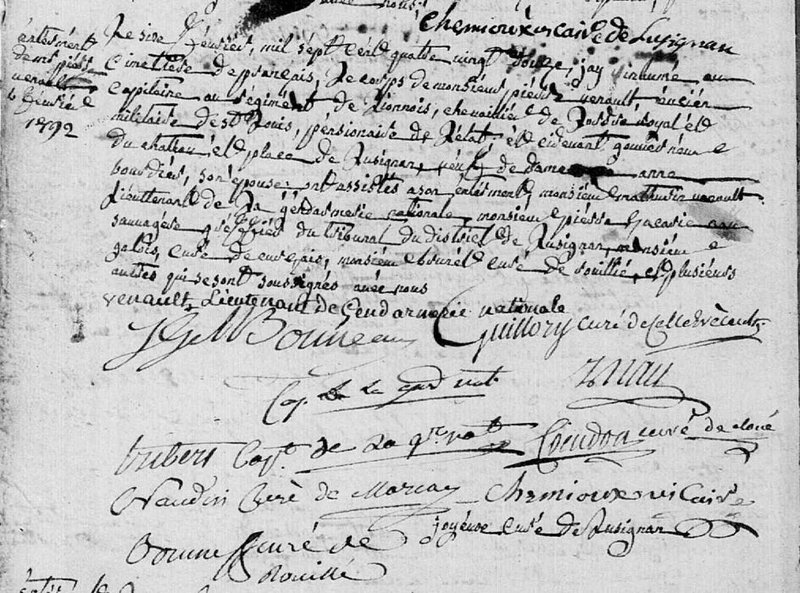 avec nous
chemioux vicaire de Lusignan
enterment
de mr pierre
venault
6 feuvrié
1792
Le six feuvrier, mil sept cent quatre vingt douze, jay inhumé au
cimetiere de penençais, Le corps de monsieur pierre venault, encien
capitaine au regiment de Lionnois, chevaillié de Lordre royal et
militaire de st Louis, pensionaire de L'etat et cidevant gouverneur
du chateau et place de Lusignan, veuf de dame anne
bourdier, son epouse: ont assistés a son enterment, monsieur mathurin venault
Lieutenant de La gendarmerie nationale, monsieur pierre
sauvagere greffiér du tribunal du district de Lusignan, monsieur
galois, curé de monsieur curé de rouillé, et plusieurs
autres qui se sont soussignés avec nous
venault, Lieutenant de Gendarmerie nationale
JGM Bonneau Guillory curé de Celle Levécault
Cap. de La gard nat
hubert Cap. de La gde nat. curé de cloué
Naudin Curé de Marcay Chemioux vicaire
joyeux curé de Lusignan
Bonnet curé de
Rouillé